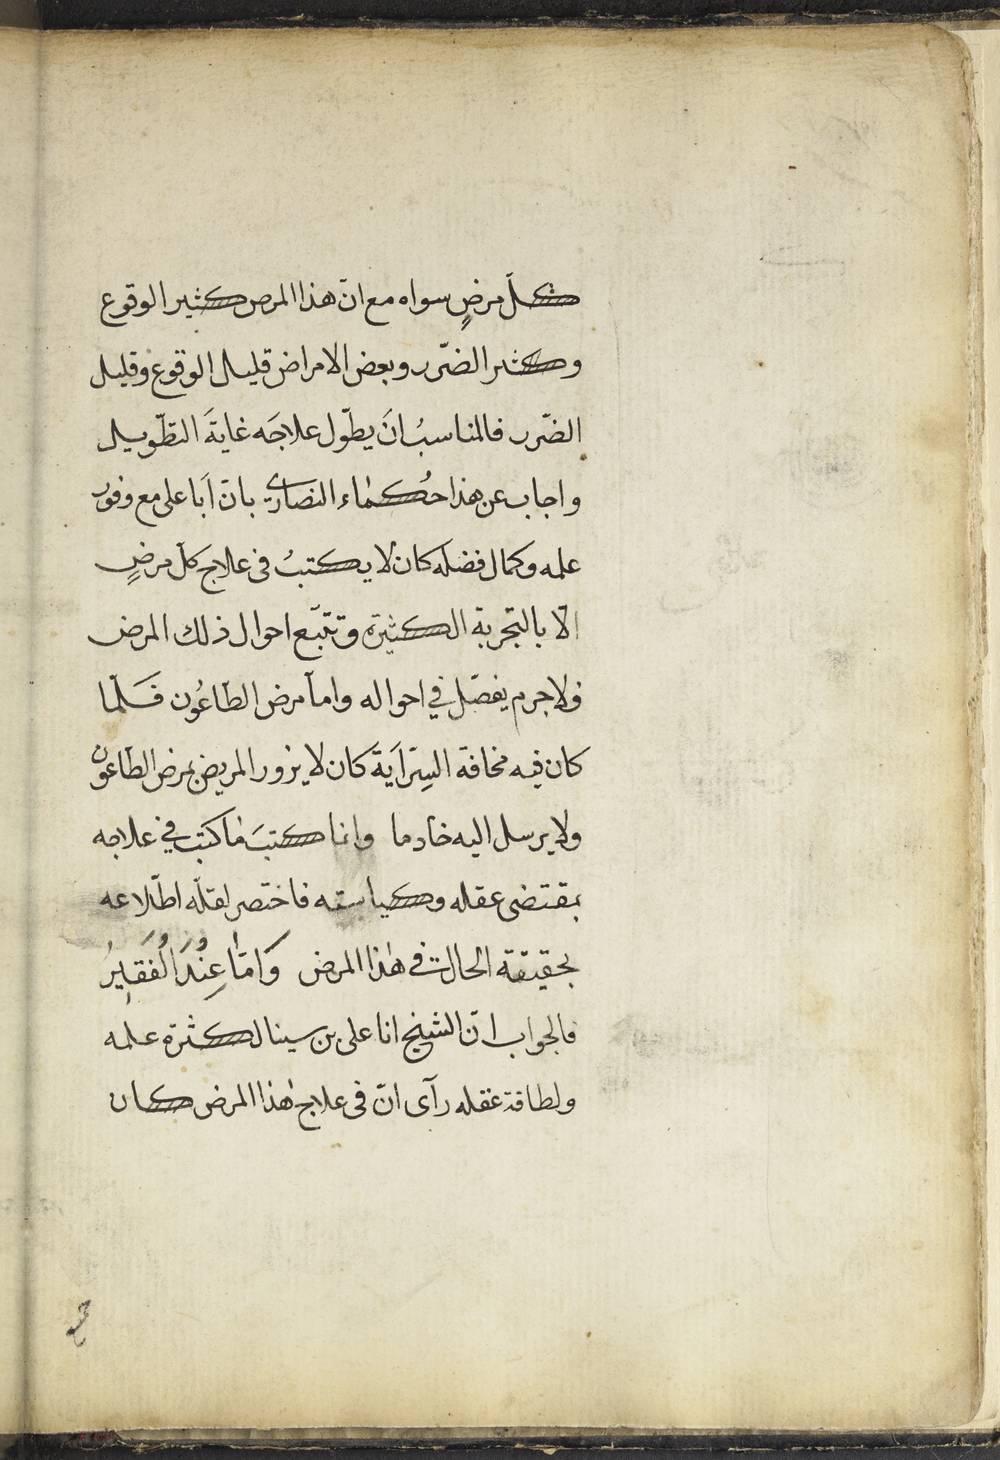 كلّ مرضٍ سواه مع انّ هذا المرض كثير الوقوع
وكثير الضّرر وبعض الامراض قليل الوقوع وقليل
الضّرر فالمناسبُ انَ يطّول علاجَه غايةَ التطّويل
واجاب عن هذا حُكماء النصارى بانّ اَبا على مع وفور
علمه وكمال فضله كان لا يكتبُ فى علاج كلّ مرضٍ
الّا بالتجربة الكثيرة وتتبّع احوال ذلك المرض
فلا جرم يفصّل في احواله وامآ مرض الطّاعُون فَلّما
كان فيه مخافة السِرّاَيَة كان لا يزور المريض بمرض الطّاعون
ولا يرسل اليه خادما وانما كتبَ ما كتب في علاجه
بمقتضى عقله وكياسته فاختصر لقلّه اطّلاعه
بحقيقة الحال فى هٰذا المرض وَامّا عِنْدَ الْفَقِيرُ
فالجواب انّ الشيخ ابا على بن سينا لكثرة علمه
ولطافة عقله رآى انّ فى علاج هٰذا المرض كان